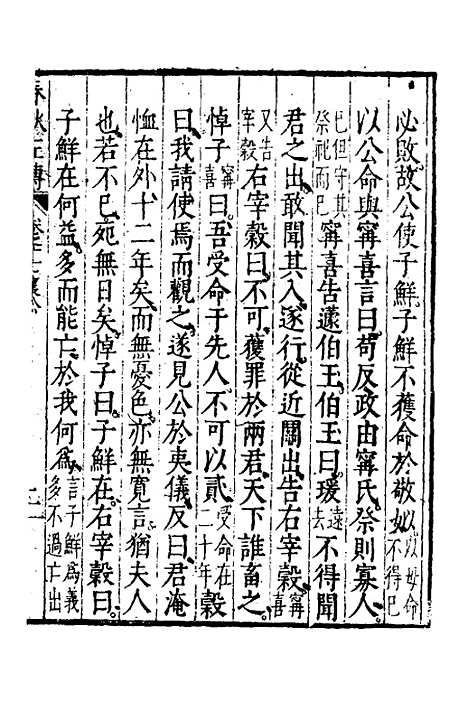 必敗故公使子鮮子鮮不獲命於敬姒以母命不得已
以公命與甯喜言曰苟反政由甯氏祭則寡人
巳但守其祭祀而巳甯喜告蘧伯玉伯玉曰瑗不得聞
君之出敢聞其入遂行從近關出告右宰穀甯喜
又告宰穀右宰穀曰不可獲罪於兩君天下誰畜之
悼子甯喜曰吾受命于先人不可以貳受命在二十年穀
曰我請使焉而觀之遂見公於夷儀反曰君淹
恤在外十二年矣而無憂色亦無寬言猶夫人
也若不已死無日矣悼子曰子鮮在右宰穀曰
子鮮在何益多而能亡於我何為言子鮮為義多不過亡出
春秋左傳